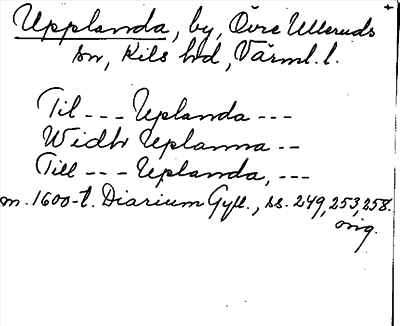 Upplanda, by, Övre Ulleruds
sn, Kils hd, Värml. l.
Til --- Uplanda ---
Widh Uplanna --
Till --- Uplanda, ---
m. 1600-t. Diarium Gyll., ss. 249, 253, 258.
orig.